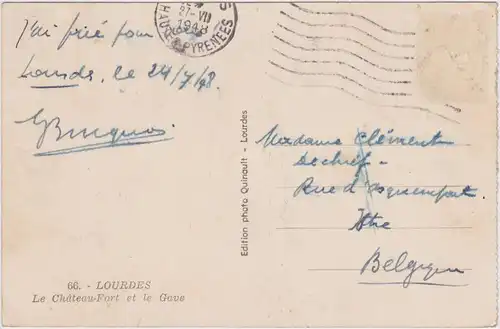 J'ai prié pour
Lourdes, le 24/7/48
27-VII
1948
HAUTES PYRENEES
Edition photo Quinault - Lourdes
Madame Clément
Dechief -
Rue d'
Ittre
Belgique
66. - LOURDES
Le Château-Fort et le Gave